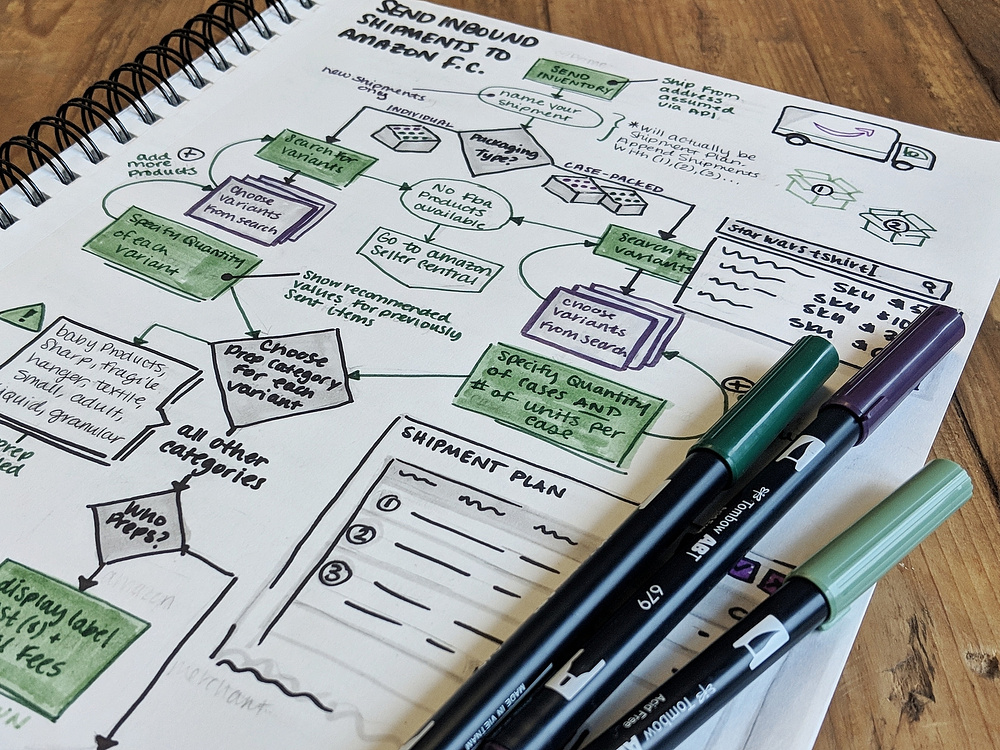 SEND INBOUND
SHIPMENTS TO
AMAZON F.C.
SEND
INVENTORY
ship from
address
assumed
via API
new shipments
only
name your
shipment
*will actually be
shipment plan.
Append shipments
with (1),(2),(3)...
INDIVIDUAL
Packaging
Type?
CASE-PACKED
1
2
Search for
variants
add
more
products
+
choose
variants
from search
No FBA
Products
available
Go to amazon
Seller Central
Search for
variants
Star wars tshirt
SKU
SKU
SKU
Specify Quantity
of each
variant
Show recommended
values for previously
sent items
choose
variants
from search
Specify Quantity
of cases AND
# of units per
case
+
Choose
prep category
for each
variant
baby products,
sharp, fragile
hanger, textile,
small, adult,
liquid, granular
prep
all other
categories
Who
Preps?
amazon
merchant
display label
Fees
SHIPMENT PLAN
1
2
3
Tombow ABT
679
MADE IN VIETNAM
Tombow
Acid Free